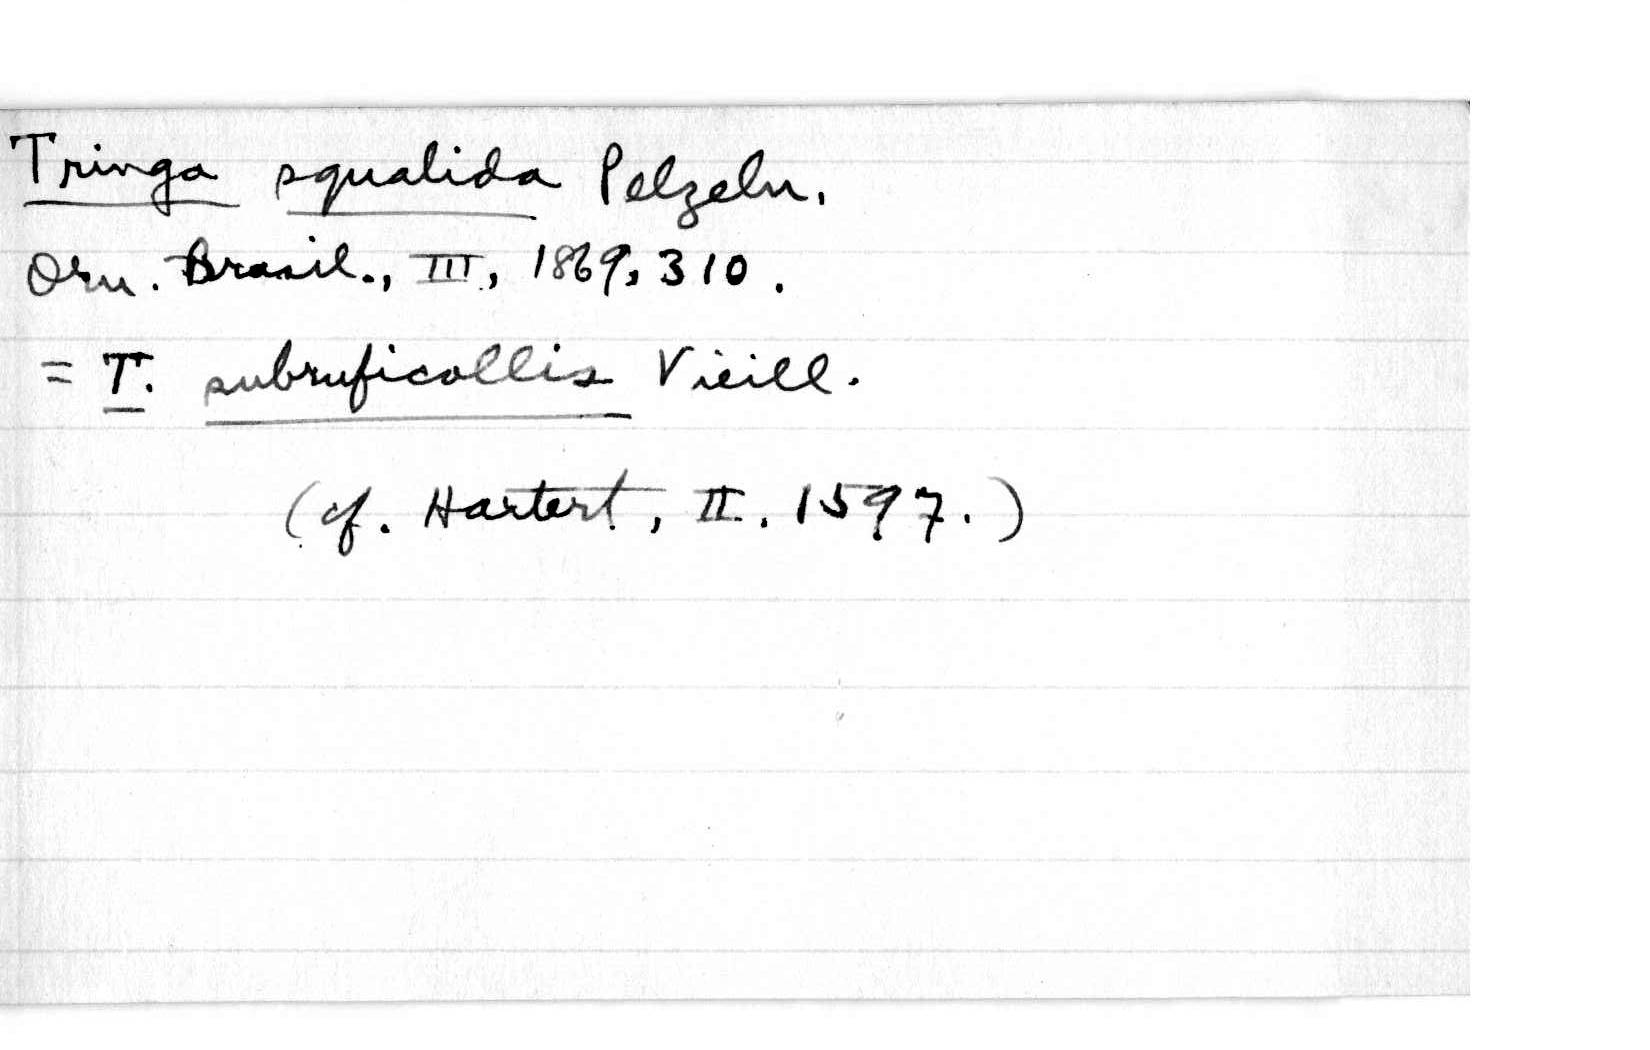 Tringa squalida Pelzeln.
Orn. Brasil., III, 1869, 310.
= T. subruficollis Vieill.
(cf. Hartert, II. 1597.)